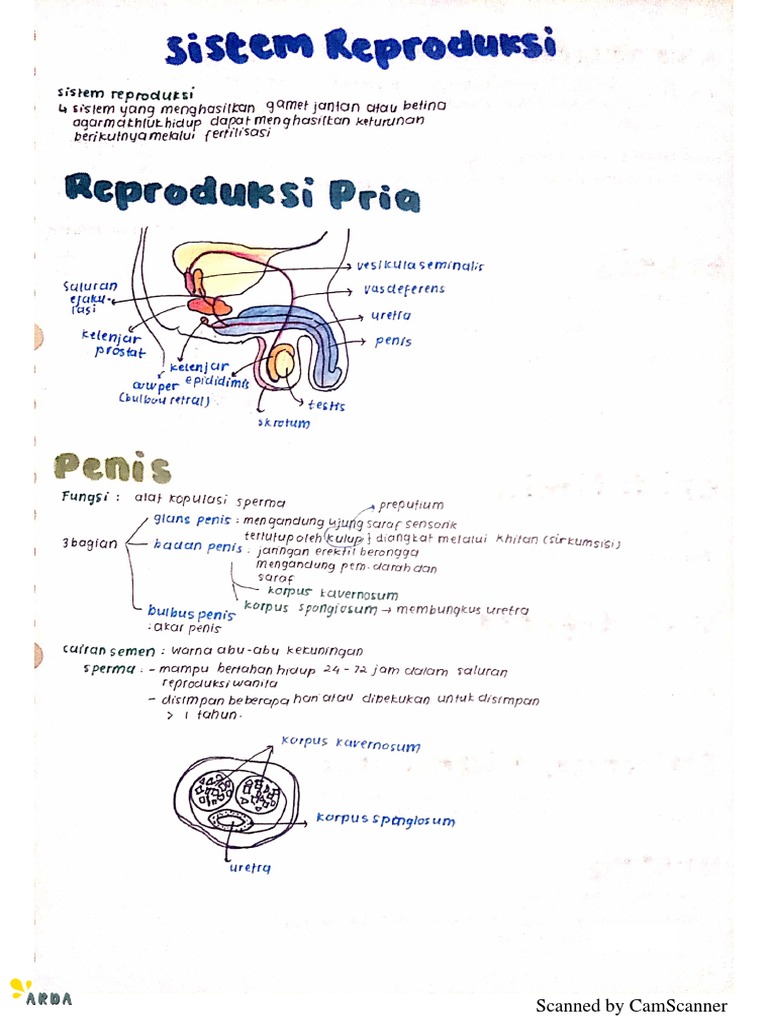 Sistem Reproduksi
sistem reproduksi
↳ sistem yang menghasilkan gamet jantan atau betina
agar makhluk hidup dapat menghasilkan keturunan
berikutnya melalui fertilisasi
Reproduksi Pria
vesikula seminalis
saluran
ejaku-
lasi
vas deferens
uretra
kelenjar
prostat
penis
kelenjar
cowper
(bulbouretral)
epididimis
testis
skrotum
Penis
Fungsi : alat kopulasi sperma
preputium
3 bagian
glans penis : mengandung ujung saraf sensorik
tertutup oleh kulup ; diangkat melalui khitan (sirkumsisi)
badan penis : jaringan erektil berongga
mengandung pem. darah dan
saraf
korpus kavernosum
korpus spongiosum → membungkus uretra
bulbus penis
: akar penis
cairan semen : warna abu-abu kekuningan
sperma : - mampu bertahan hidup 24 - 72 jam dalam saluran
reproduksi wanita
- disimpan beberapa hari atau dibekukan untuk disimpan
> 1 tahun.
korpus kavernosum
korpus spongiosum
uretra
ARDA
Scanned by CamScanner